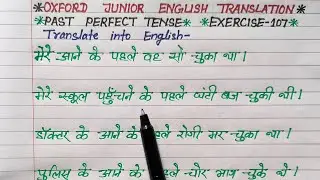 *OXFORD JUNIOR ENGLISH TRANSLATION*
*PAST PERFECT TENSE* *EXERCISE-107*
Translate into English-
मेरे आने के पहले वह सो चुका था।
मेरे स्कूल पहुँचने के पहले घंटी बज चुकी थी।
डॉक्टर के आने के पहले रोगी मर चुका था।
पुलिस के आने के पहले चोर भाग चुके थे।